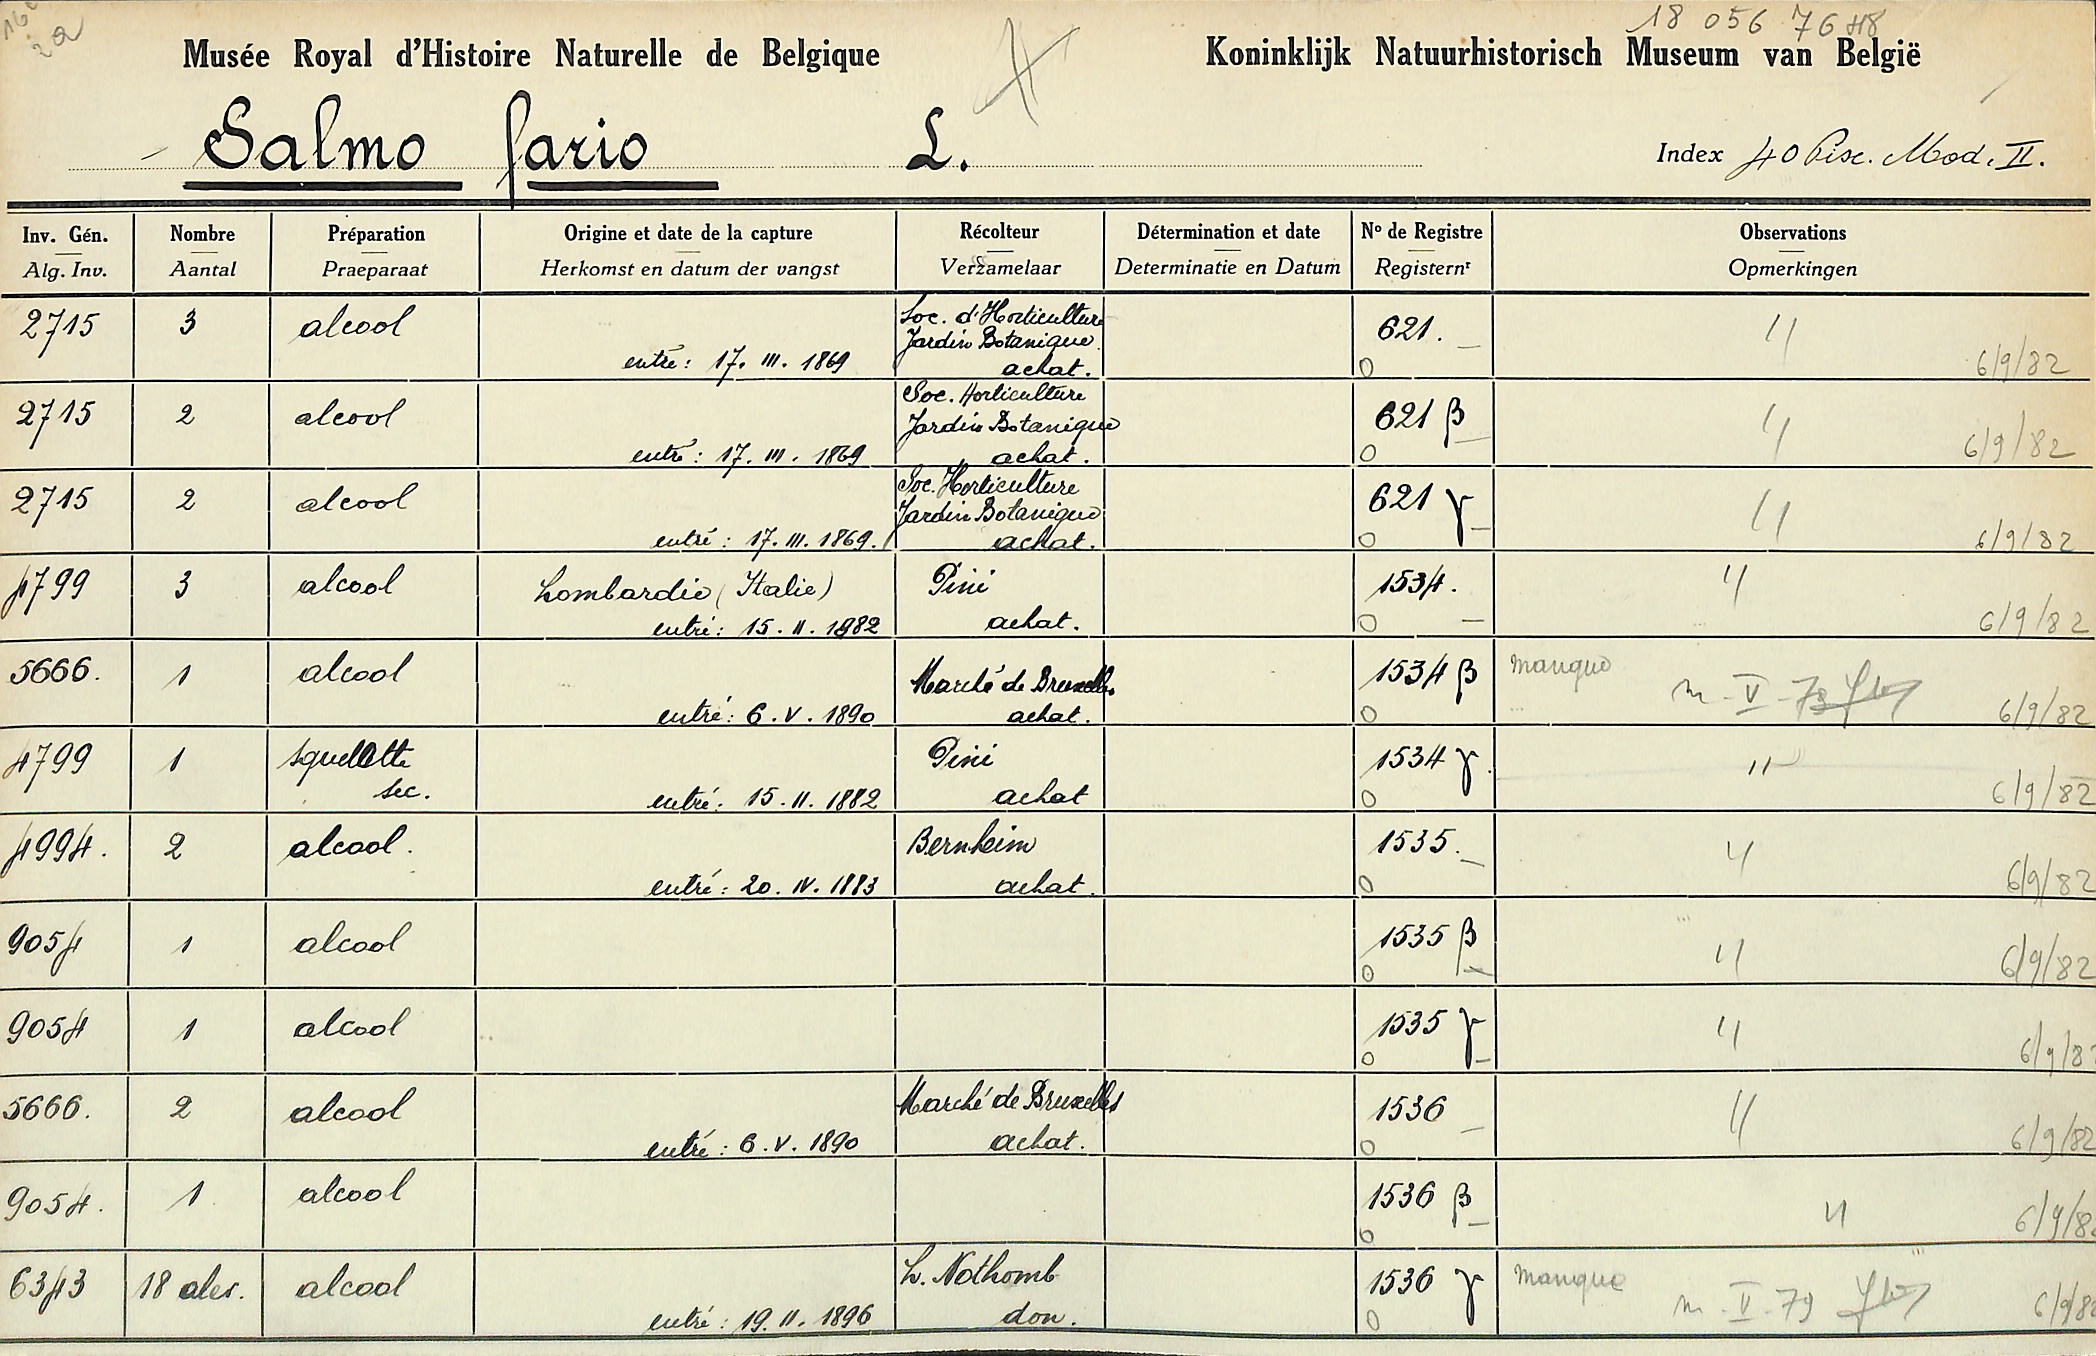 18 056 76 H8
Musée Royal d'Histoire Naturelle de Belgique Koninklijk Natuurhistorisch Museum van België
Salmo fario L. Index 40 Pisc. Mod. II.
Inv. Gén. Nombre Préparation Origine et date de la capture Récolteur Détermination et date Nº de Registre Observations
Alg. Inv. Aantal Praeparaat Herkomst en datum der vangst Verzamelaar Determinatie en Datum Registernr Opmerkingen
2715 3 alcool Soc. d'Horticulture 621. _ 4
Jardin Botanique
entré : 17. III. 1869 achat. 0 6/9/82
2715 2 alcool Soc. Horticulture 621 β 4
Jardin Botanique
entré : 17. III. 1869 achat. 0 6/9/82
2715 2 alcool Soc. Horticulture 621 γ 4
Jardin Botanique
entré : 17. III. 1869. achat. 0 6/9/82
4799 3 alcool Lombardie (Italie) Pini 1534. 4
entré : 15. II. 1982 achat. 0 6/9/82
5666. 1 alcool Marché de Bruxelles 1534 β manque
m - V - 78
entré : 6. V. 1890 achat. 0 6/9/82
4799 1 squelette Pini 1534 γ. "
sec. entré : 15. II. 1882 achat 0 6/9/82
4994. 2 alcool. Bernheim 1535. 4
entré : 20. IV. 1883 achat. 0 6/9/82
9054 1 alcool 1535 β 4
0 6/9/82
9054 1 alcool 1535 γ 4
0 6/9/8
5666. 2 alcool Marché de Bruxelles 1536 4
entré : 6. V. 1890 achat. 0 6/9/82
9054. 1 alcool 1536 β 4
0 6/9/82
6343 18 alev. alcool L. Nothomb 1536 γ manque
m - V - 79
entré : 19. II. 1896 don. 0 6/9/82